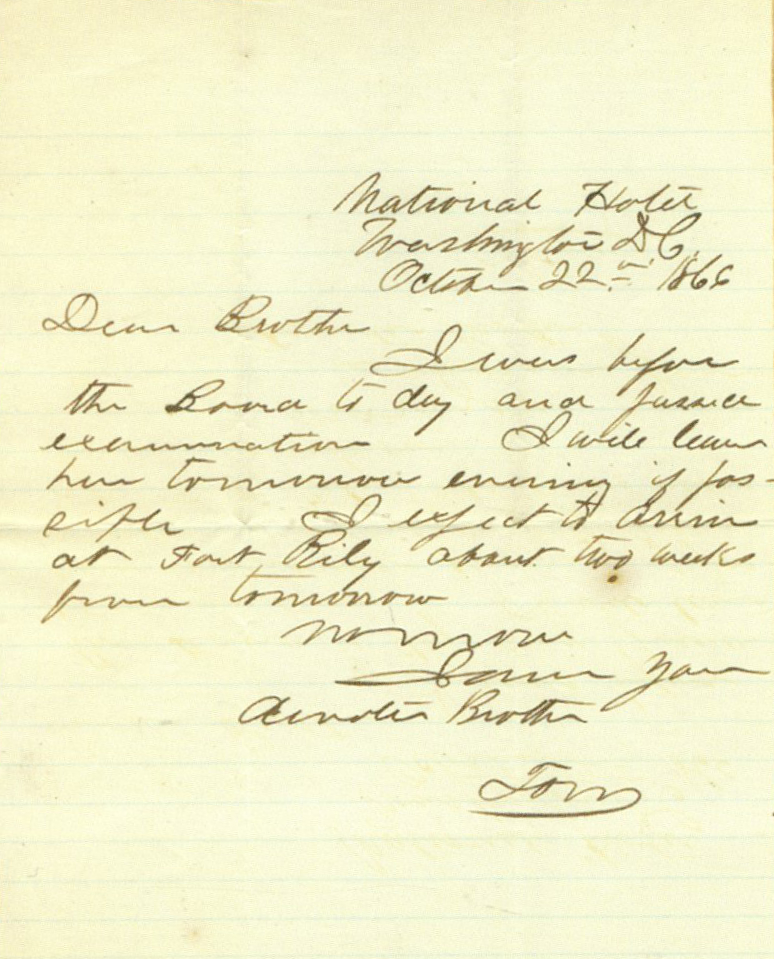 National Hotel
Washington D.C.
October 22nd 1866
Dear Brother
I was before
the Board to day and passed
examination I will leave
here tomorrow evening if pos-
sible I expect to arrive
at Fort Rily about two weeks
from tomorrow
no more
I am your
devoted Brother
Tom